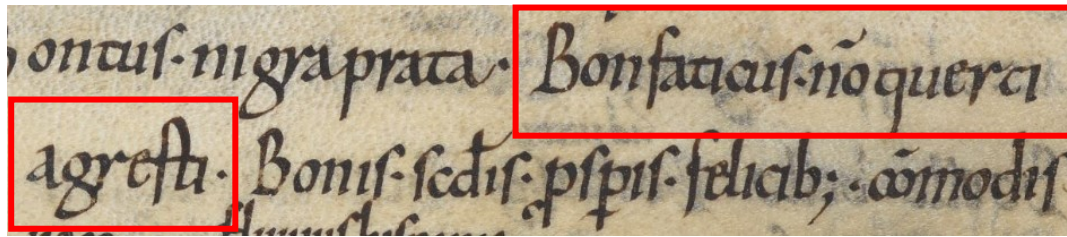 ontus · nigra prata · Bonfaticus · nō querci
agresti · Bonis · scd̄is · ꝓsꝑis · felicib; · cōmodis